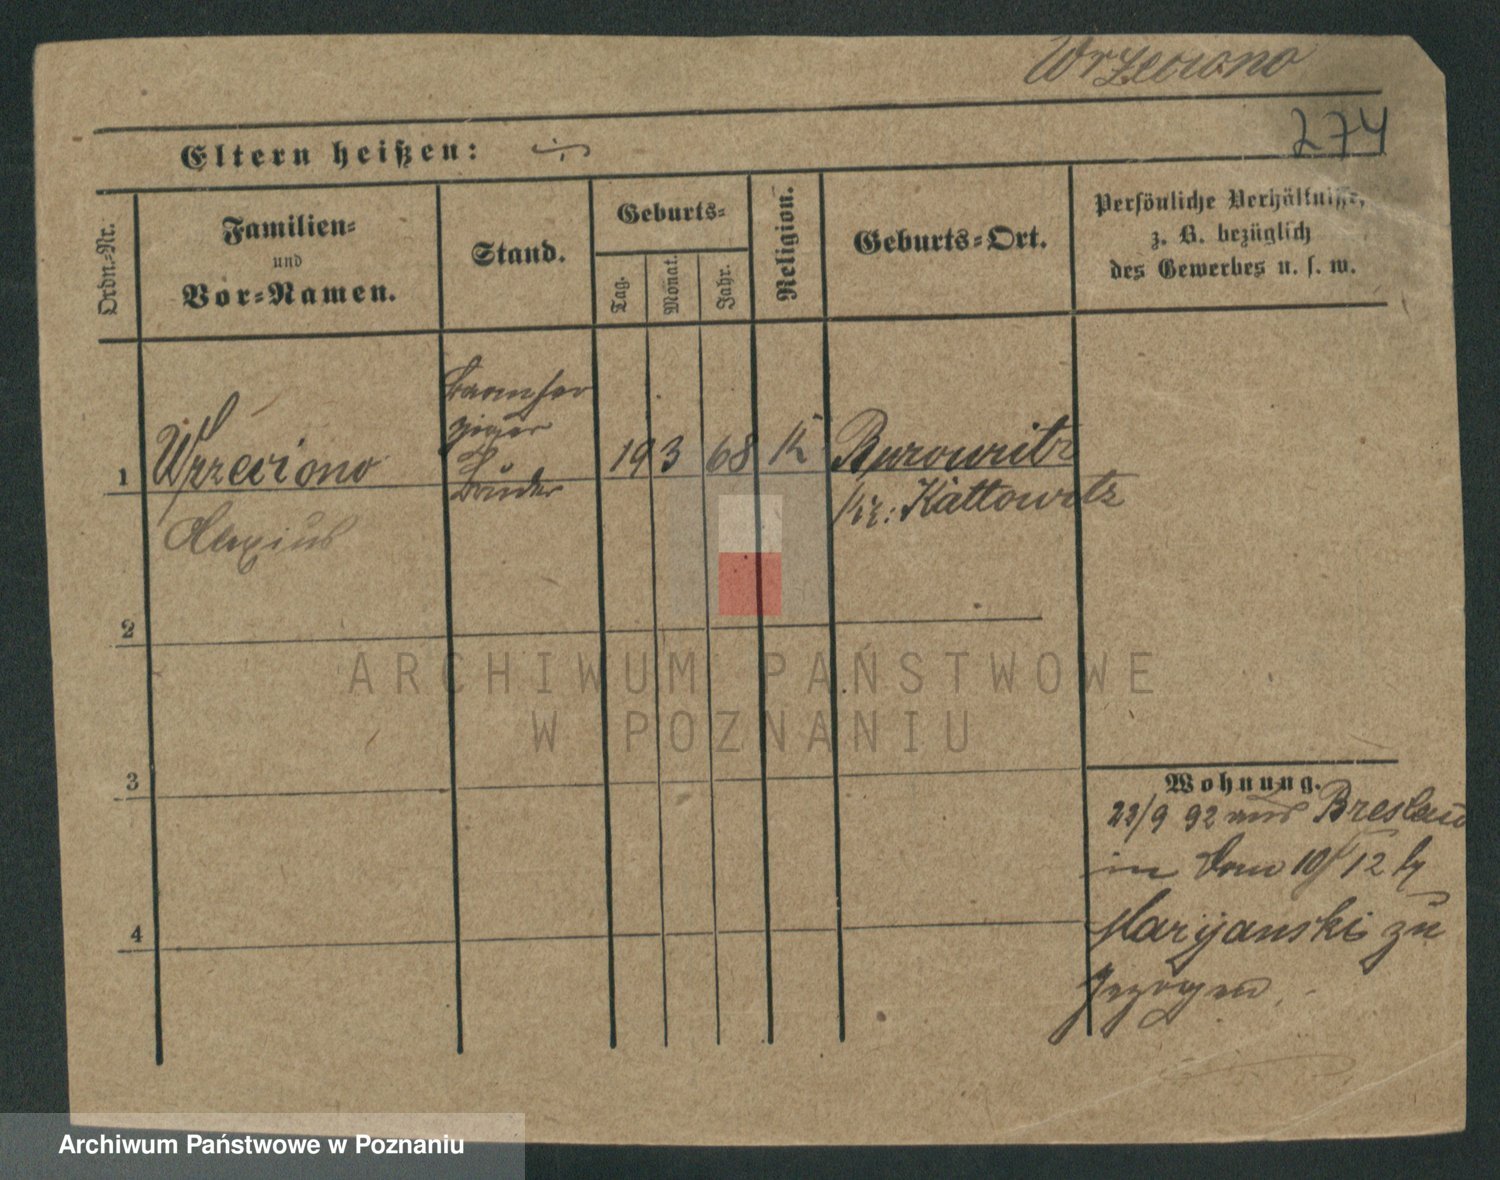 Wrzeciono
274
Eltern heißen: ÷
Ordn.-Nr.
Familien-
und
Vor-Namen.
Stand.
Geburts-
Tag.
Monat.
Jahr.
Religion.
Geburts-Ort.
Persönliche Verhältnisse,
z. B. bezüglich
des Gewerbes u. s. w.
1
Wrzeciono
Alexius
Barmher
ziger
Bruder
19 3 68 K
Burowitz
Kr: Kattowitz
2
3
4
Wohnung.
22/9 92 aus Breslau
in Dom 10/12 b
Maryanski zu
gezogen.
ARCHIWUM PAŃSTWOWE
W POZNANIU
Archiwum Państwowe w Poznaniu